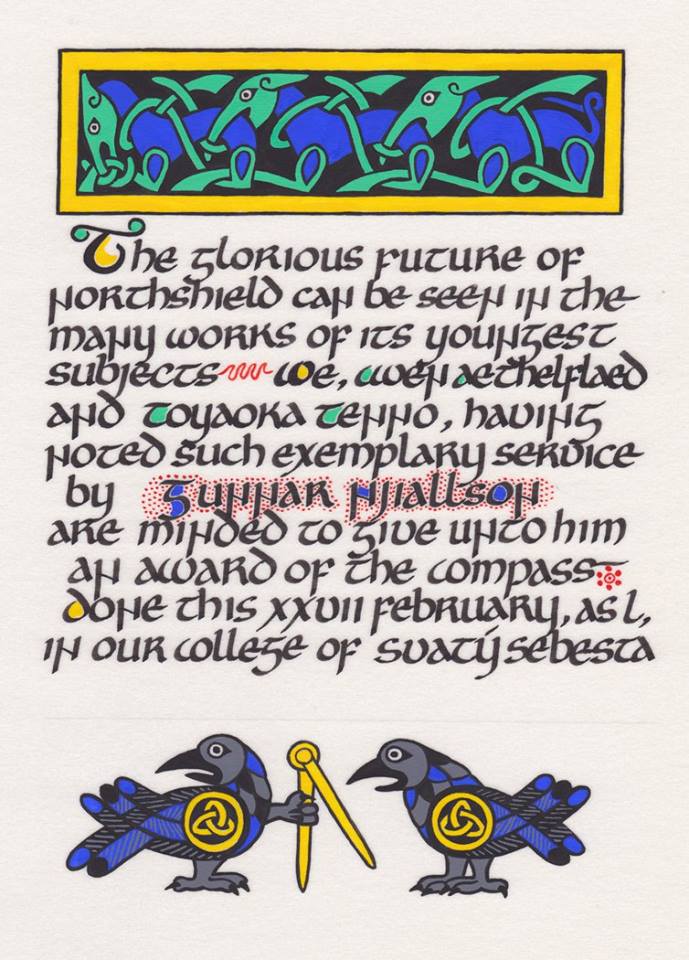 The glorious future of
northshield can be seen in the
many works of its youngest
subjects we, wen aethelflaed
and toyaoka tenno, having
noted such exemplary service
by gunnar njiallson
are minded to give unto him
an award of the compass
done this xxvii february, as L,
in our college of svatý sebesta